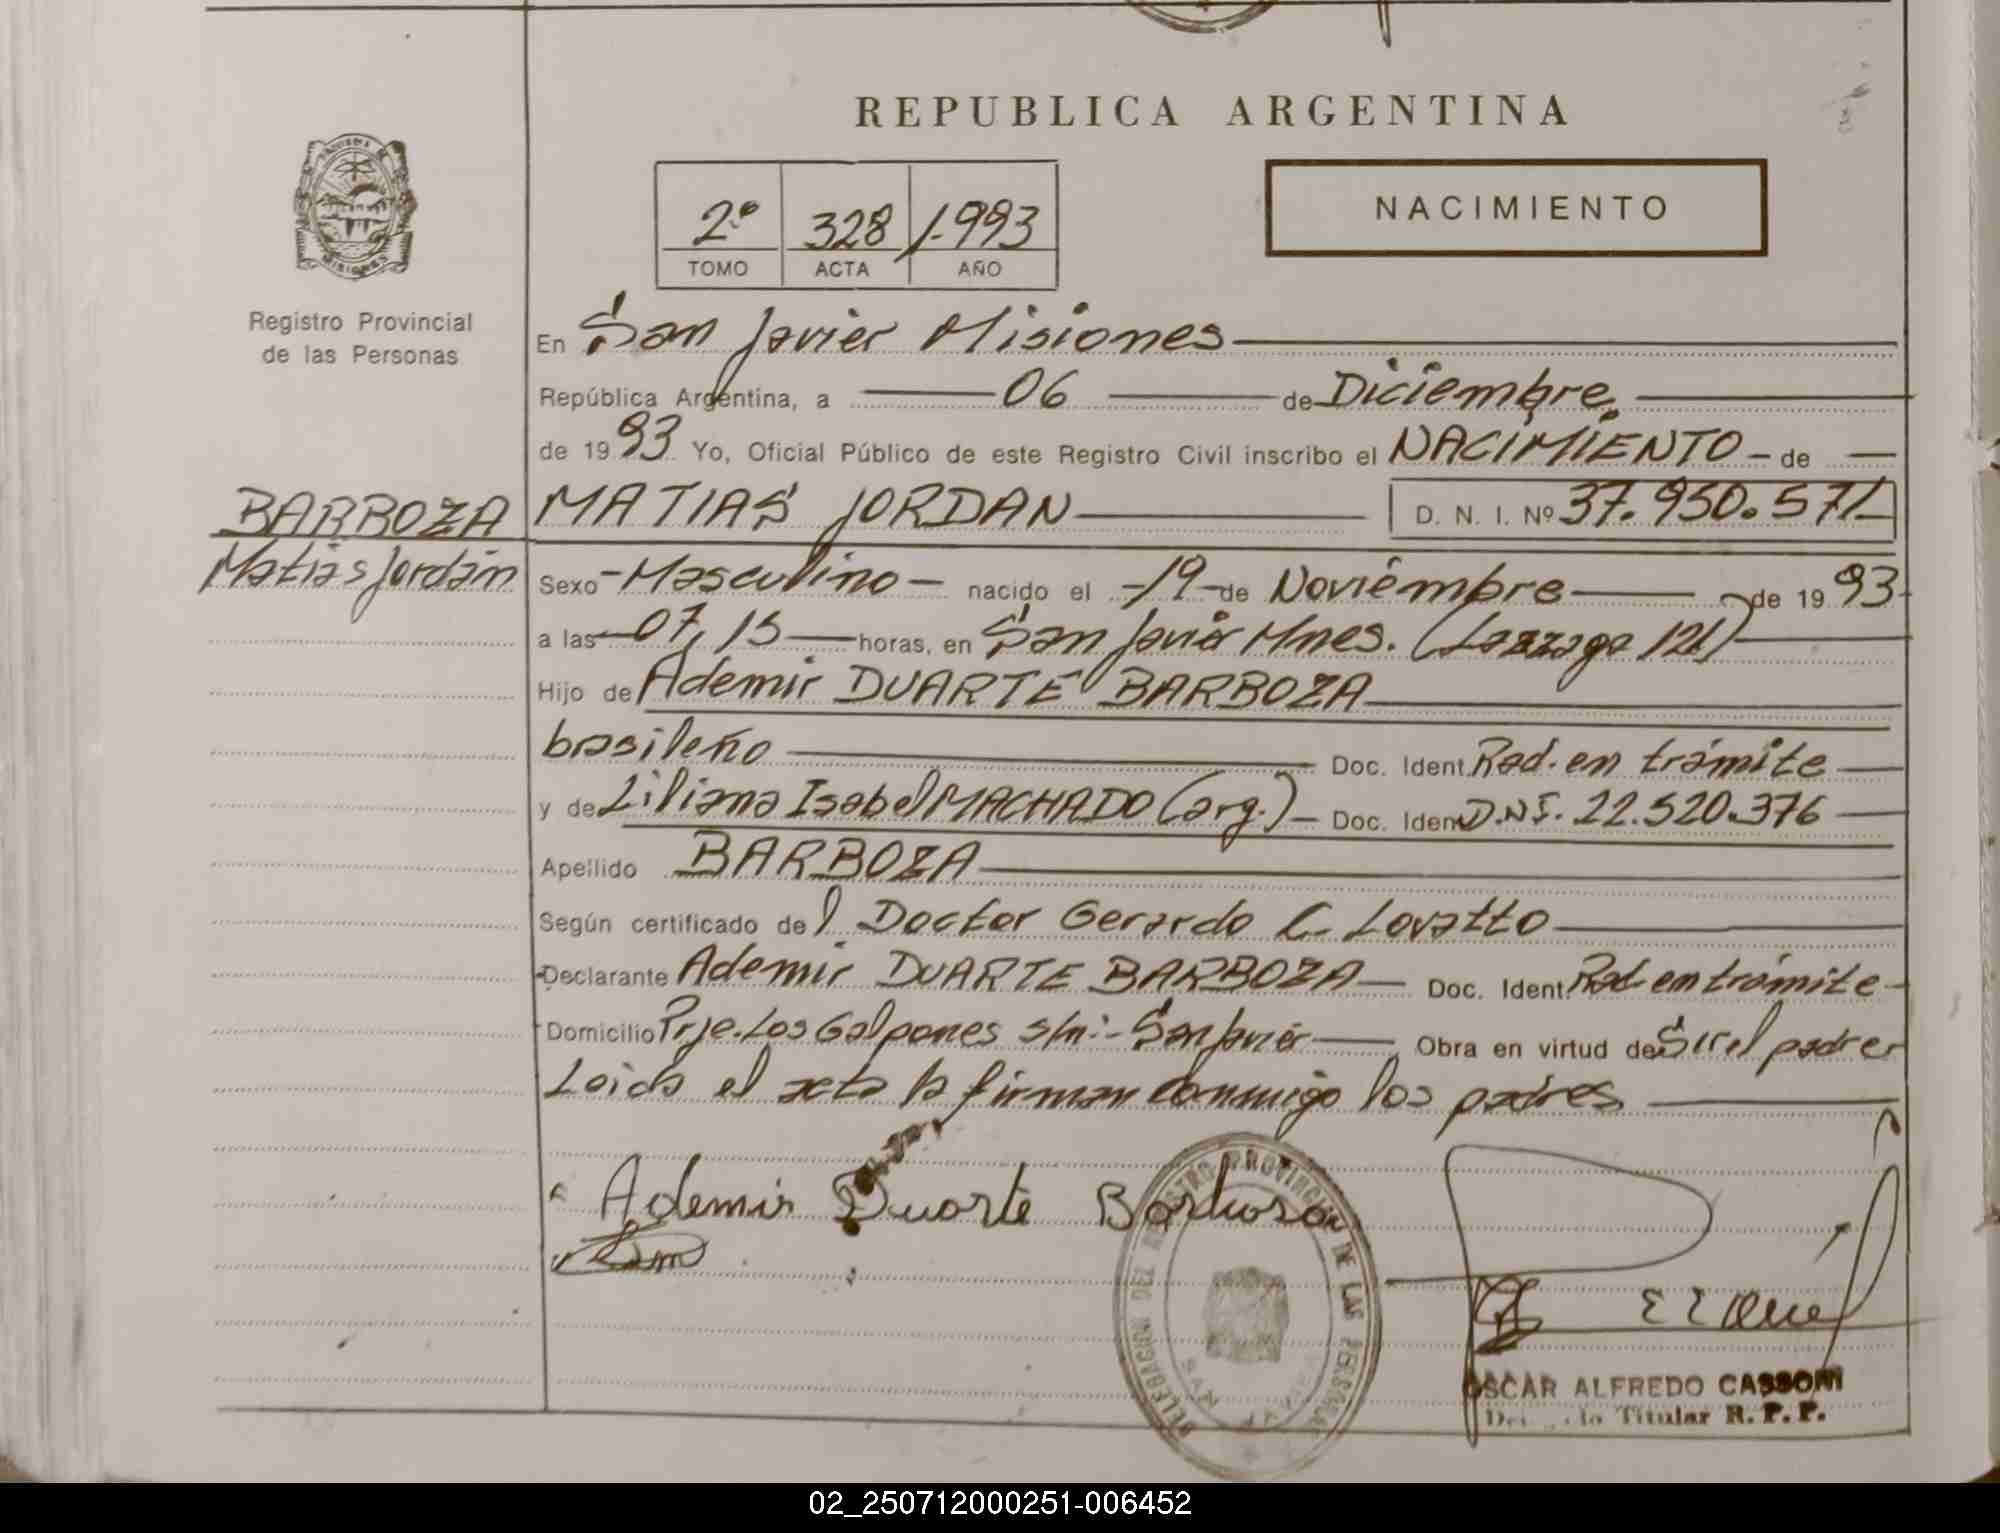 REPUBLICA ARGENTINA
2º 328 1.993
TOMO ACTA AÑO
NACIMIENTO
MISIONES
Registro Provincial
de las Personas
En San Javier Misiones
República Argentina, a 06 de Diciembre
de 1993 Yo, Oficial Público de este Registro Civil inscribo el NACIMIENTO - de
BARBOZA
Matias Jordán
MATIAS JORDAN D. N. I. Nº 37.950.571
Sexo - Masculino - nacido el - 19 - de Noviembre de 1993
a las 07,15 horas, en San Javier Mnes. (Lazzaga 121)
Hijo de Ademir DUARTE BARBOZA
brasileño Doc. Ident. Rad. en trámite
y de Liliana Isabel MACHADO (arg.) - Doc. Iden D.N.I. 22.520.376
Apellido BARBOZA
Según certificado del Doctor Gerardo C. Lovatto
Declarante Ademir DUARTE BARBOZA Doc. Ident. Rad. en trámite
Domicilio Prje. Los Galpones s/n: - San Javier Obra en virtud de Sir el padre
Leida el acta la firman conmigo los padres
Ademir Duarte Barbosa
DELEGACION DEL REGISTRO PROVINCIAL DE LAS PERSONAS
SAN JAVIER
OSCAR ALFREDO CASSONI
Titular R. P. P.
02_250712000251-006452